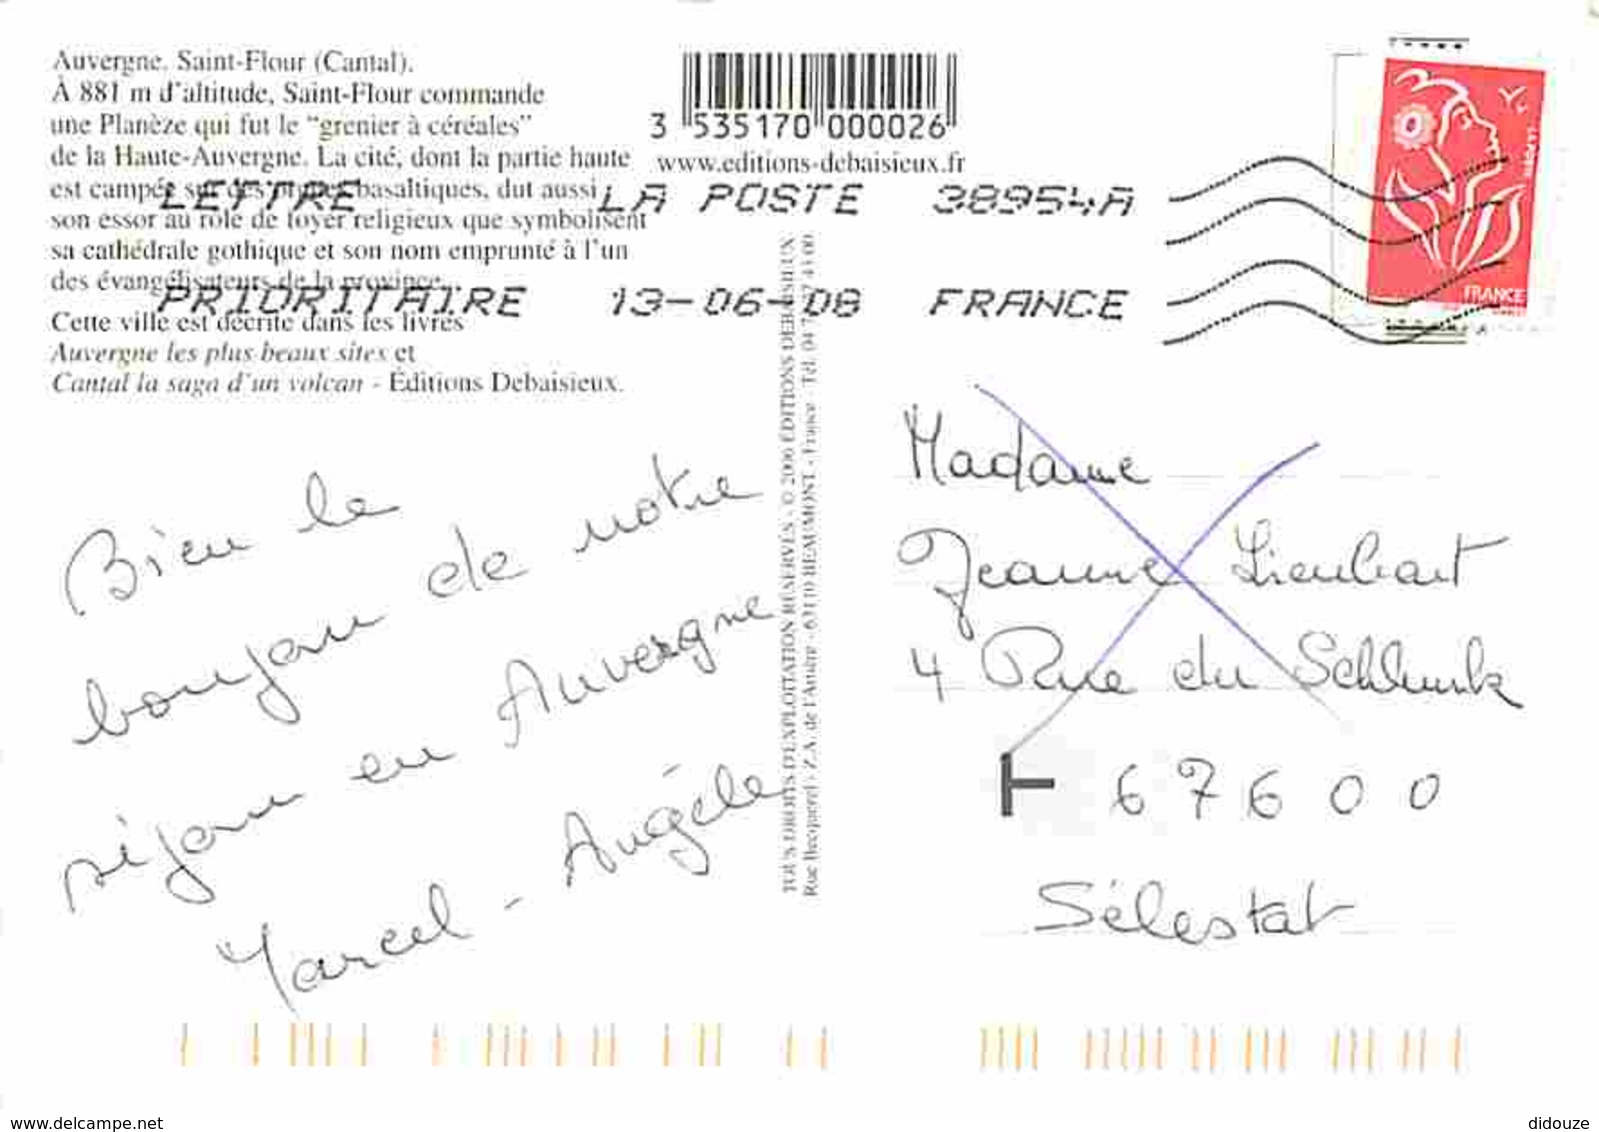 Auvergne. Saint-Flour (Cantal).
À 881 m d'altitude, Saint-Flour commande
une Planèze qui fut le "grenier à céréales"
de la Haute-Auvergne. La cité, dont la partie haute
est campée sur des orgues basaltiques, dut aussi
son essor au rôle de foyer religieux que symbolisent
sa cathédrale gothique et son nom emprunté à l'un
des évangélisateurs de la province...
Cette ville est décrite dans les livres
Auvergne les plus beaux sites et
Cantal la saga d'un volcan - Éditions Debaisieux.
3 535170 000026
www.editions-debaisieux.fr
LETTRE LA POSTE 38954A
PRIORITAIRE 13-06-08 FRANCE
FRANCE
TOUS DROITS D'EXPLOITATION RÉSERVÉS - © 2006 ÉDITIONS DEBAISIEUX
Rue Becquerel - Z.A. de l'Artière - 63110 BEAUMONT - France - Tél. 04
Bien le
bonjour de notre
séjour en Auvergne
Marcel - Angèle
Madame
Jeanne Lienhart
4 Rue du Schlunk
T 67600
Sélestat
www.delcampe.net
didouze